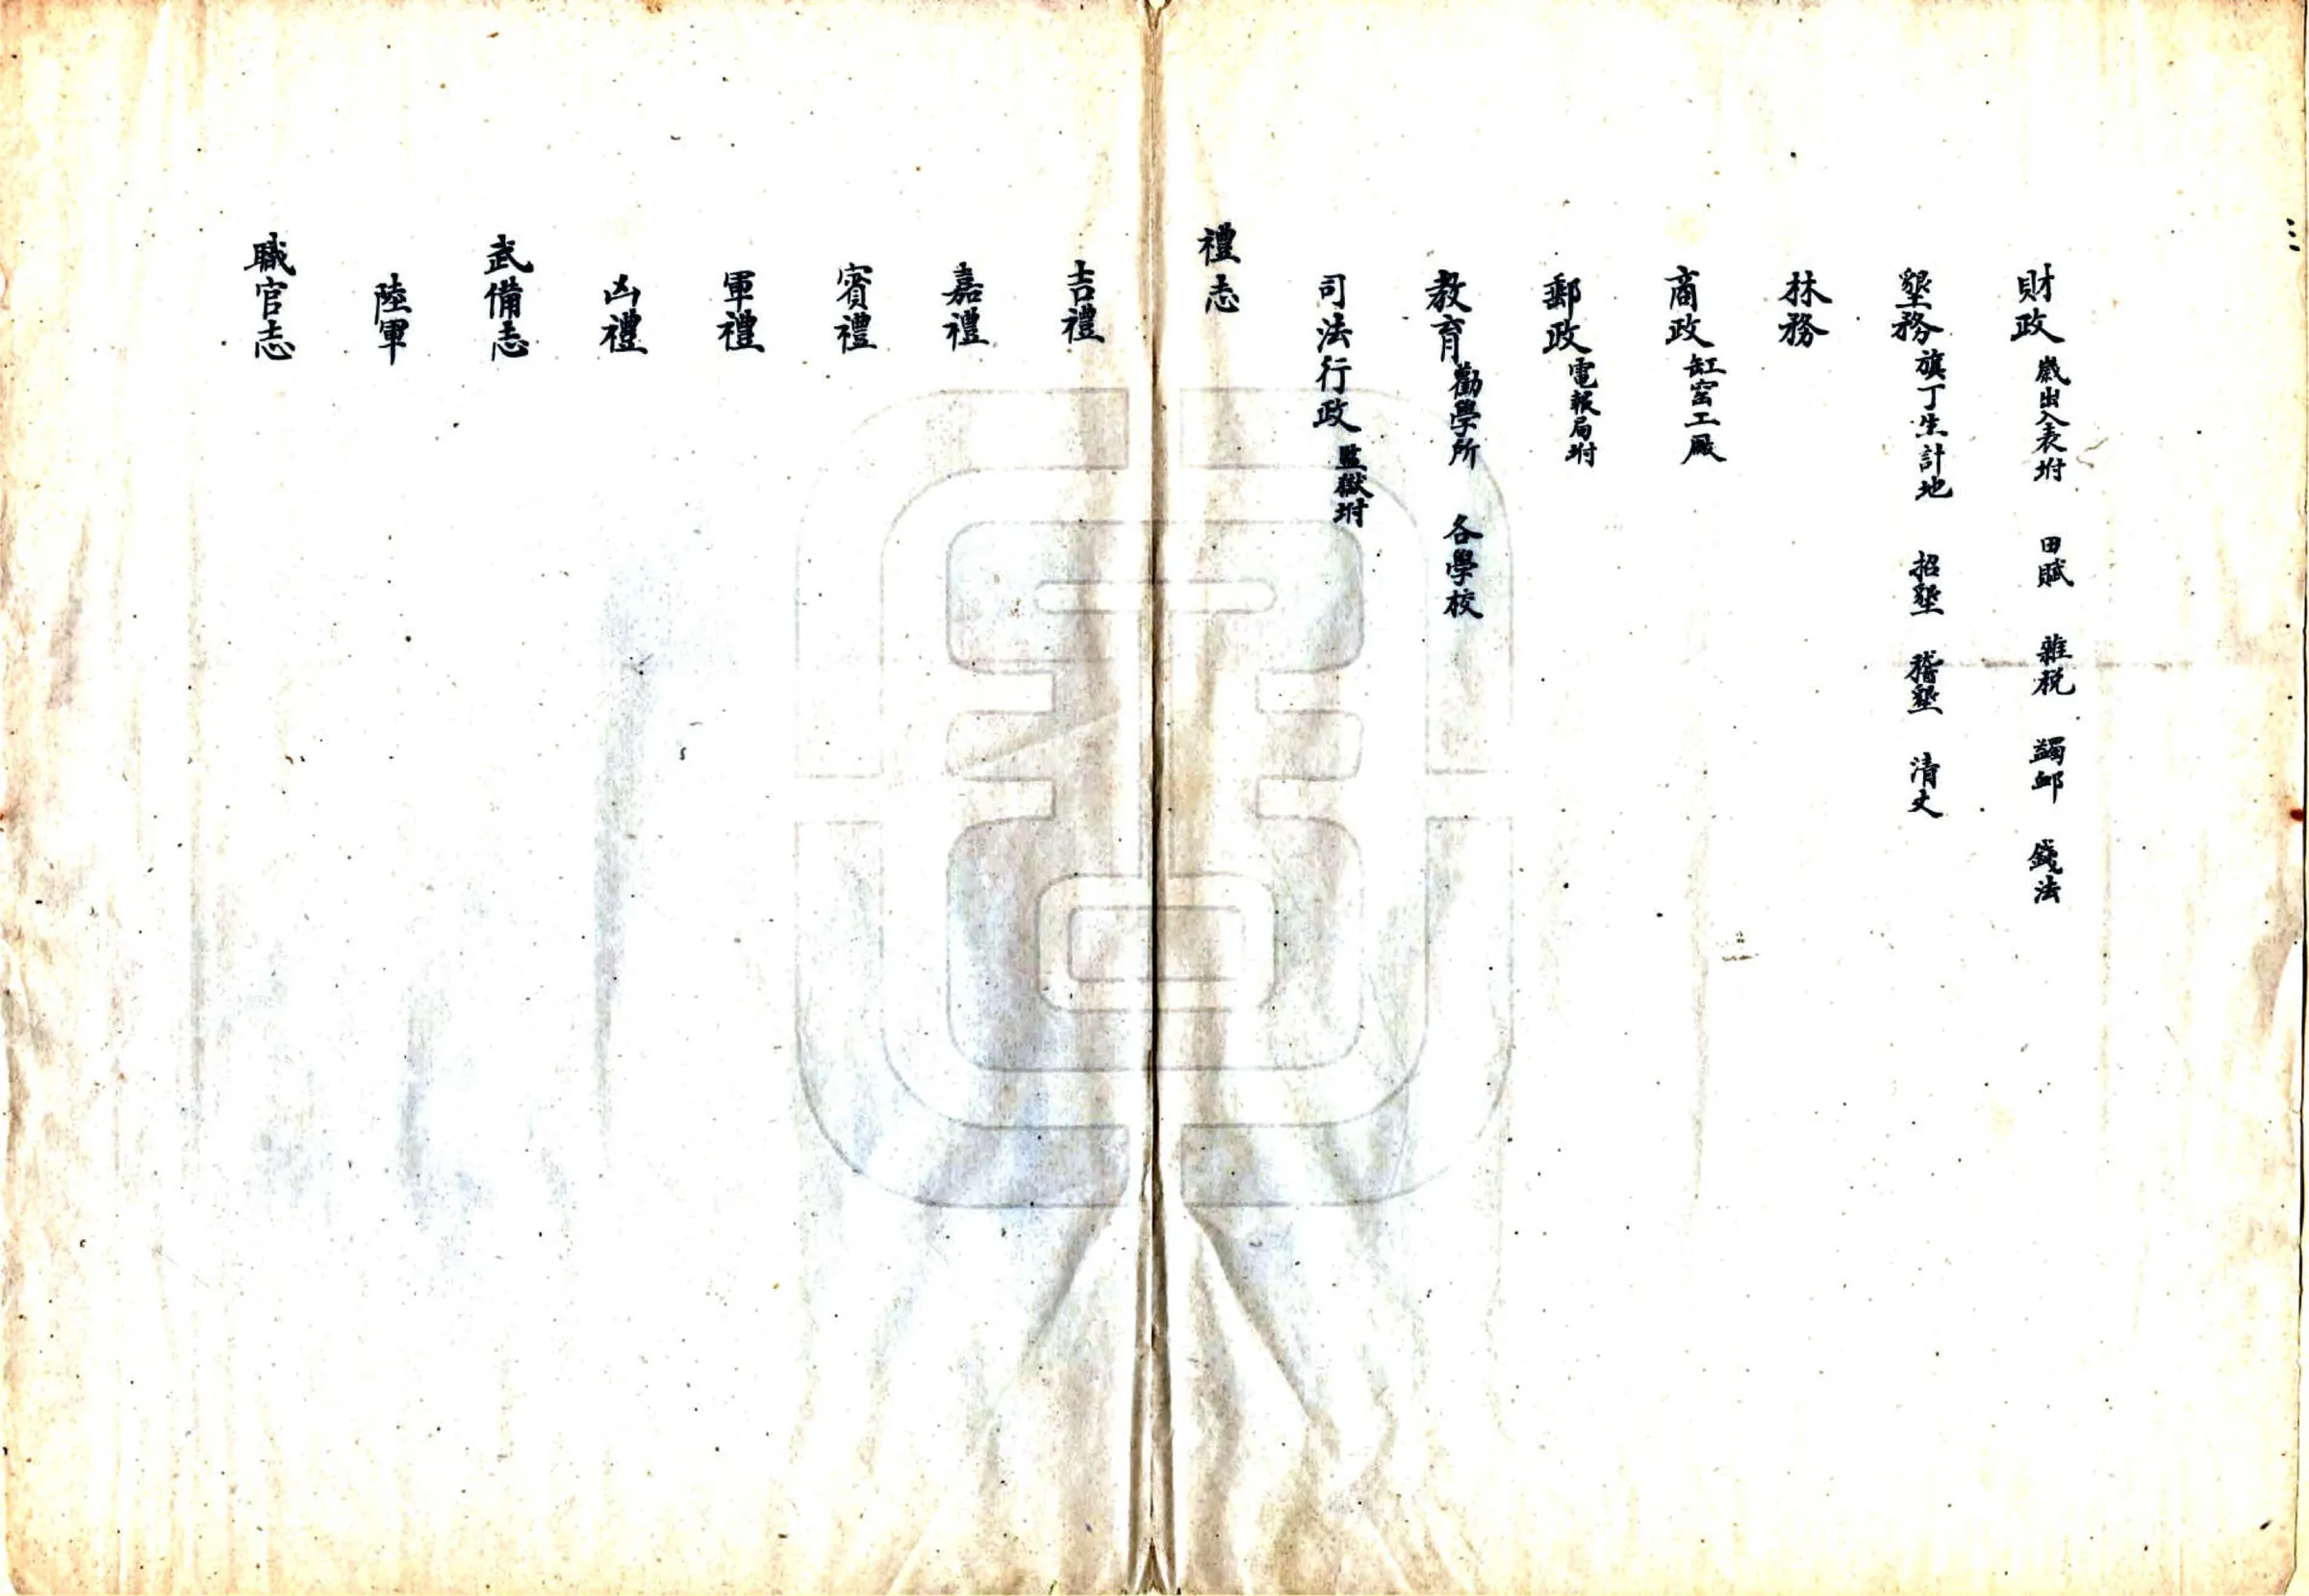 財政 歲出入表坿 田賦 雜稅 蠲卹 錢法
墾務 旗丁生計地 招墾 稽墾 清丈
林務
商政 缸窑工厰
郵政 電報局坿
教育 勸學所 各學校
司法行政 監獄坿
禮志
吉禮
嘉禮
賓禮
軍禮
凶禮
武備志
陸軍
職官志